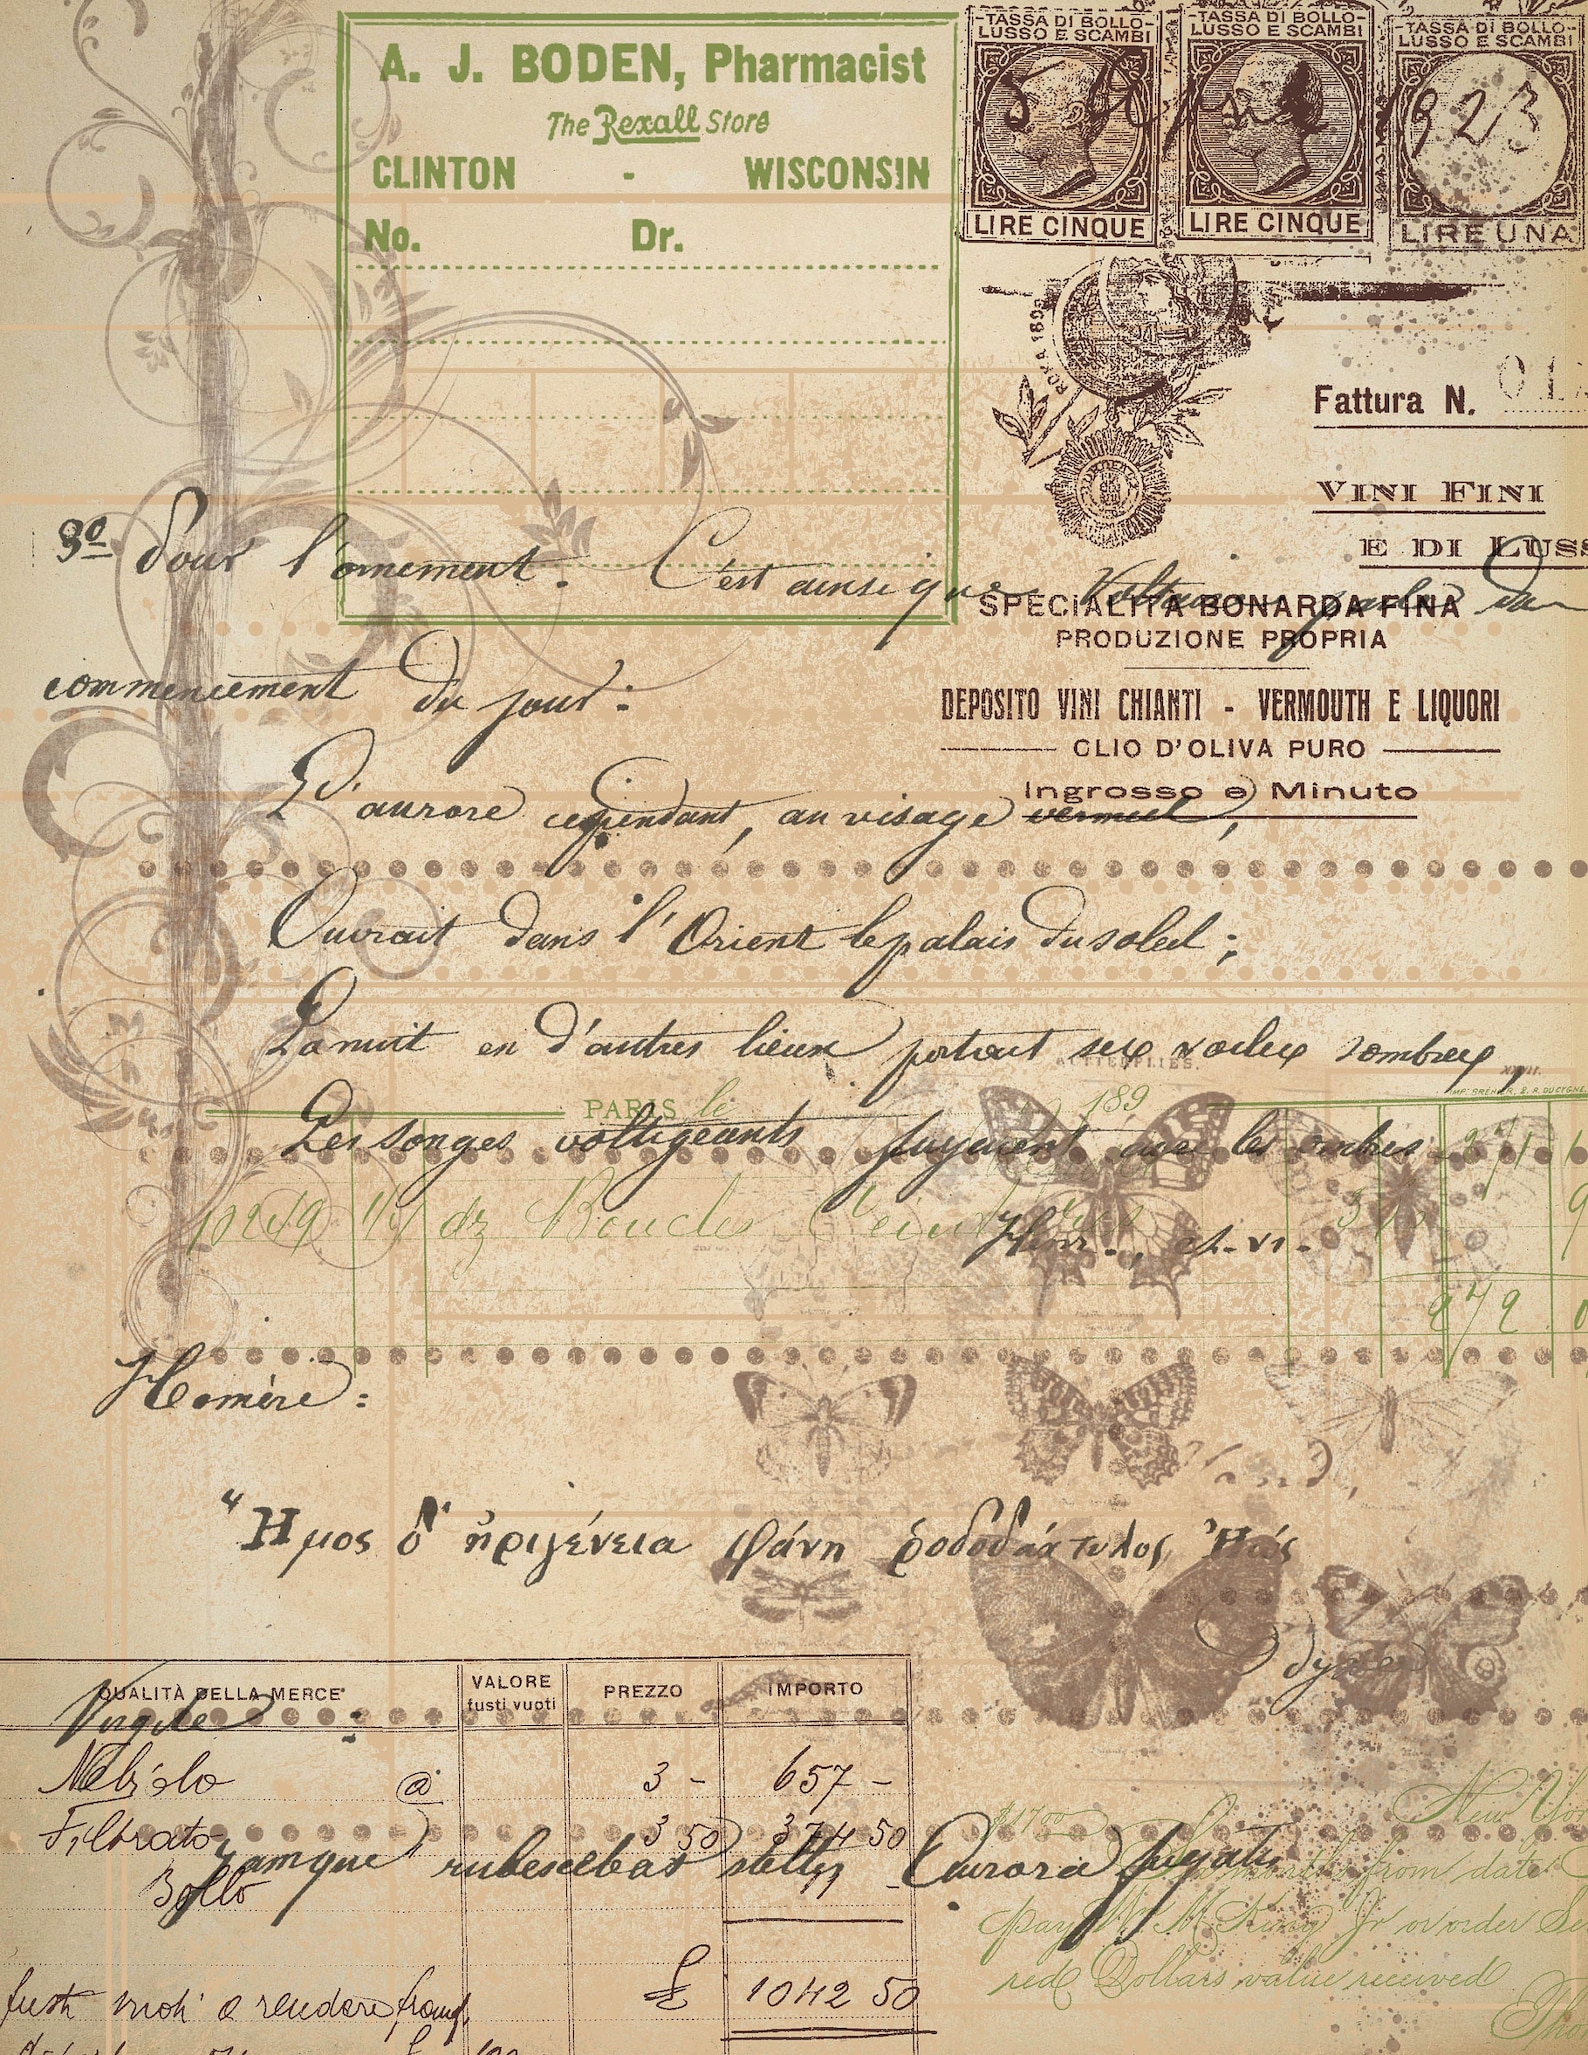 TASSA DI BOLLO
LUSSO E SCAMBI
TASSA DI BOLLO
LUSSO E SCAMBI
TASSA DI BOLLO
LUSSO E SCAMBI
A. J. BODEN, Pharmacist
The Rexall Store
1923
CLINTON - WISCONSIN
LIRE CINQUE
LIRE CINQUE
LIRE UNA
No. Dr.
ROMA
Fattura N.
VINI FINI
E DI LUSS
3º Pour l'ornement. C'est ainsi que Voltaire
SPECIALITÀ BONARDA FINA
PRODUZIONE PROPRIA
commencement du jour:
DEPOSITO VINI CHIANTI - VERMOUTH E LIQUORI
OLIO D'OLIVA PURO
Ingrosso e Minuto
L'aurore cependant, au visage vermeil,
Ouvrait dans l'Orient le palais du soleil;
La nuit en d'autres lieux portait ses voiles sombres,
PARIS le 189
Les songes voltigeants fuyaient avec les ombres
271
10249 dz Boucles
Henr., ch. VI.
272
Homère:
"Ημος δ' ἠριγένεια φάνη ῥοδοδάκτυλος Ἠώς
QUALITÀ DELLA MERCE
VALORE
fusti vuoti
PREZZO
IMPORTO
Virgile:
Nebiolo @ 3 - 657 -
Filtrato 3 50 374 50
Bollo
Jamque rubescebat stellis Aurora fugatis
$1700
New Yor
from date
pay Wm M King Jr or order
red Dollars value received
£ 1042 50
fusti vuoti a rendere
Tho